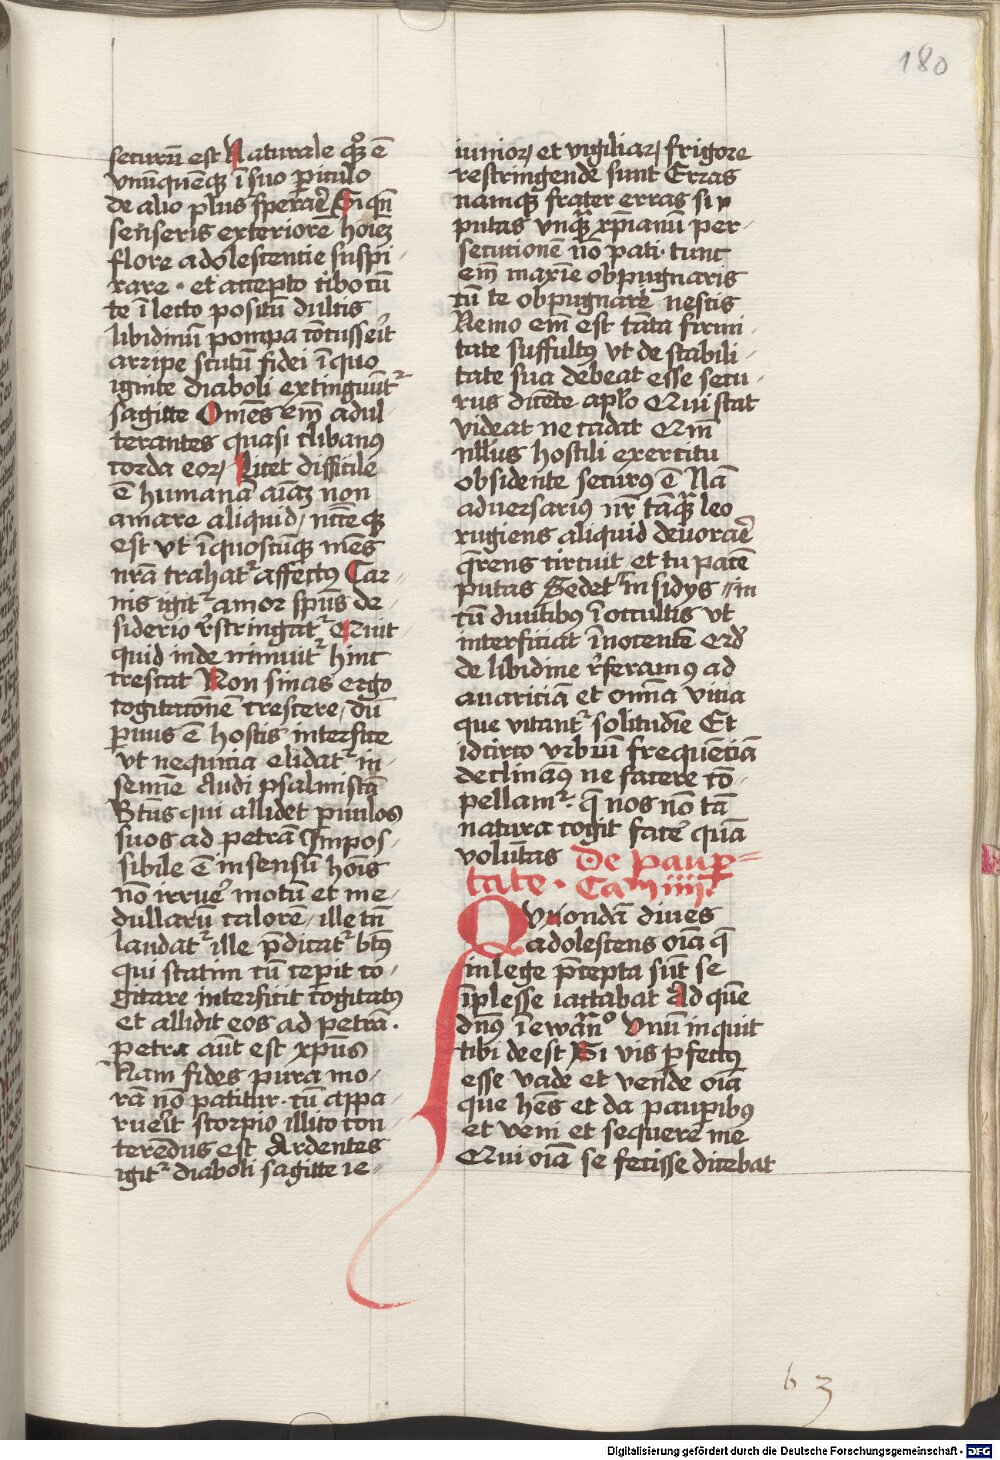 180
securū est Naturale qͦꝫ ē
vnūquēqꝫ ī suo ꝑiculo
de alio plus sperāe Si qn̄
senseris exteriorē hoīeꝫ
flore adolescentie suspi-
rare · et accepto cibo cū
te ī lecto positū dulcis
libidinū pompa cōcusseīt
arripe scutū fidei ī quo
ignite diaboli extinguūtᷣ
sagitte Omēs em̄ adul
terantes quasi clibanꝰ
corda eoꝝ Licet difficile
ē humanā aīaꝫ non
amare aliquid / nčceqꝫ
est vt ī quoscūqꝫ mēs
nrā trahatᷣ affectꝰ Car-
nis igitᷣ amor spūs de-
siderio r̄stringatᷣ Quit
quid inde minuitᷣ hinc
crescat Non sinas ergo
cogitacōnē crescere / dū
ꝑuus ē hostis interfice
vt nequicia elidatᷣ in-
semīe Audi psalmistā
Btūs qui allidet ꝑuulos
suos ad petrā Impos-
sibile ē in sensū hoīs
nō irruēr motū et me-
dullarū calorē / ille tn̄
laudatᷣ ille p̄dicatᷣ btꝰ
qui statim cū ceperit co-
gitare interficit cōgitatꝰ
et allidit eos ad petrā ·
petra aūt est xp̄us
Nam fides pura mo-
rā nō patitur · cū appa-
rueīt scorpio illico con-
terēdus est Ardentes
igitᷣ diaboli sagitte ie-
iunioꝝ et vigiliaꝝ frigore
restringende sunt Erras
namqꝫ frater erras si
putas vnqᷓ xp̄ianū per-
secutionē nō pati · tunc
em̄ maxīe obpugnaris
cū te obpugnarē nescis
Nemo em̄ est tāta firmi-
tate suffultꝰ vt de stabili-
tate sua debeat esse secu-
rus dicēte aplo Qui stat
videat ne cadat Qm̄
nllus hostili exercitu
obsidente securꝰ ē Nā
adversarius nr̄ tāqᷓ leo
rugiens aliquid devorāe
q̄rens circuit / et tu pacē
putas Sedetᷣ in sidijs / in
cū diuitibꝰ ī occultis vt
interficiat īnocentē Qrđ
de libidine r̄feramꝰ ad
auariciā et om̄a vicia
que vitantᷣ solitudīe Et
idcirco vrbiū frequēciā
declinamꝰ ne facere cō-
pellamᷣ · q̄ nos nō tā
natura cogit facēr quā
volūtas De paup̄-
tate · Cam iiii ·
Quondā dives
adolescens oīa q̄
in lege p̄cepta sūt se
īplesse iactabat Ad quē
dn̄s ī ewāno Vnū inquit
tibi deest Si vis ꝑfectꝰ
esse vade et vende oīa
que hēs et da pauꝑibꝰ
et veni et sequere me
Qui oīa se fecisse dicebat
63
Digitalisierung gefördert durch die Deutsche Forschungsgemeinschaft - DFG